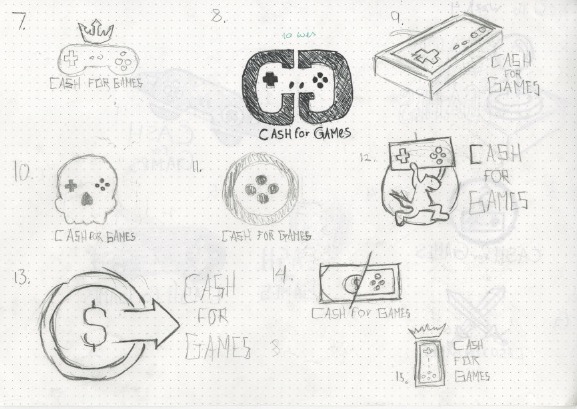 7.
CASH FOR GAMES
8.
CASH for GAMES
9.
CASH
FOR
GAMES
10.
CASH FOR GAMES
11.
CASH FOR GAMES
12.
CASH
FOR
GAMES
13.
$
CASH
FOR
GAMES
14.
CASH FOR GAMES
15.
CASH
FOR
GAMES